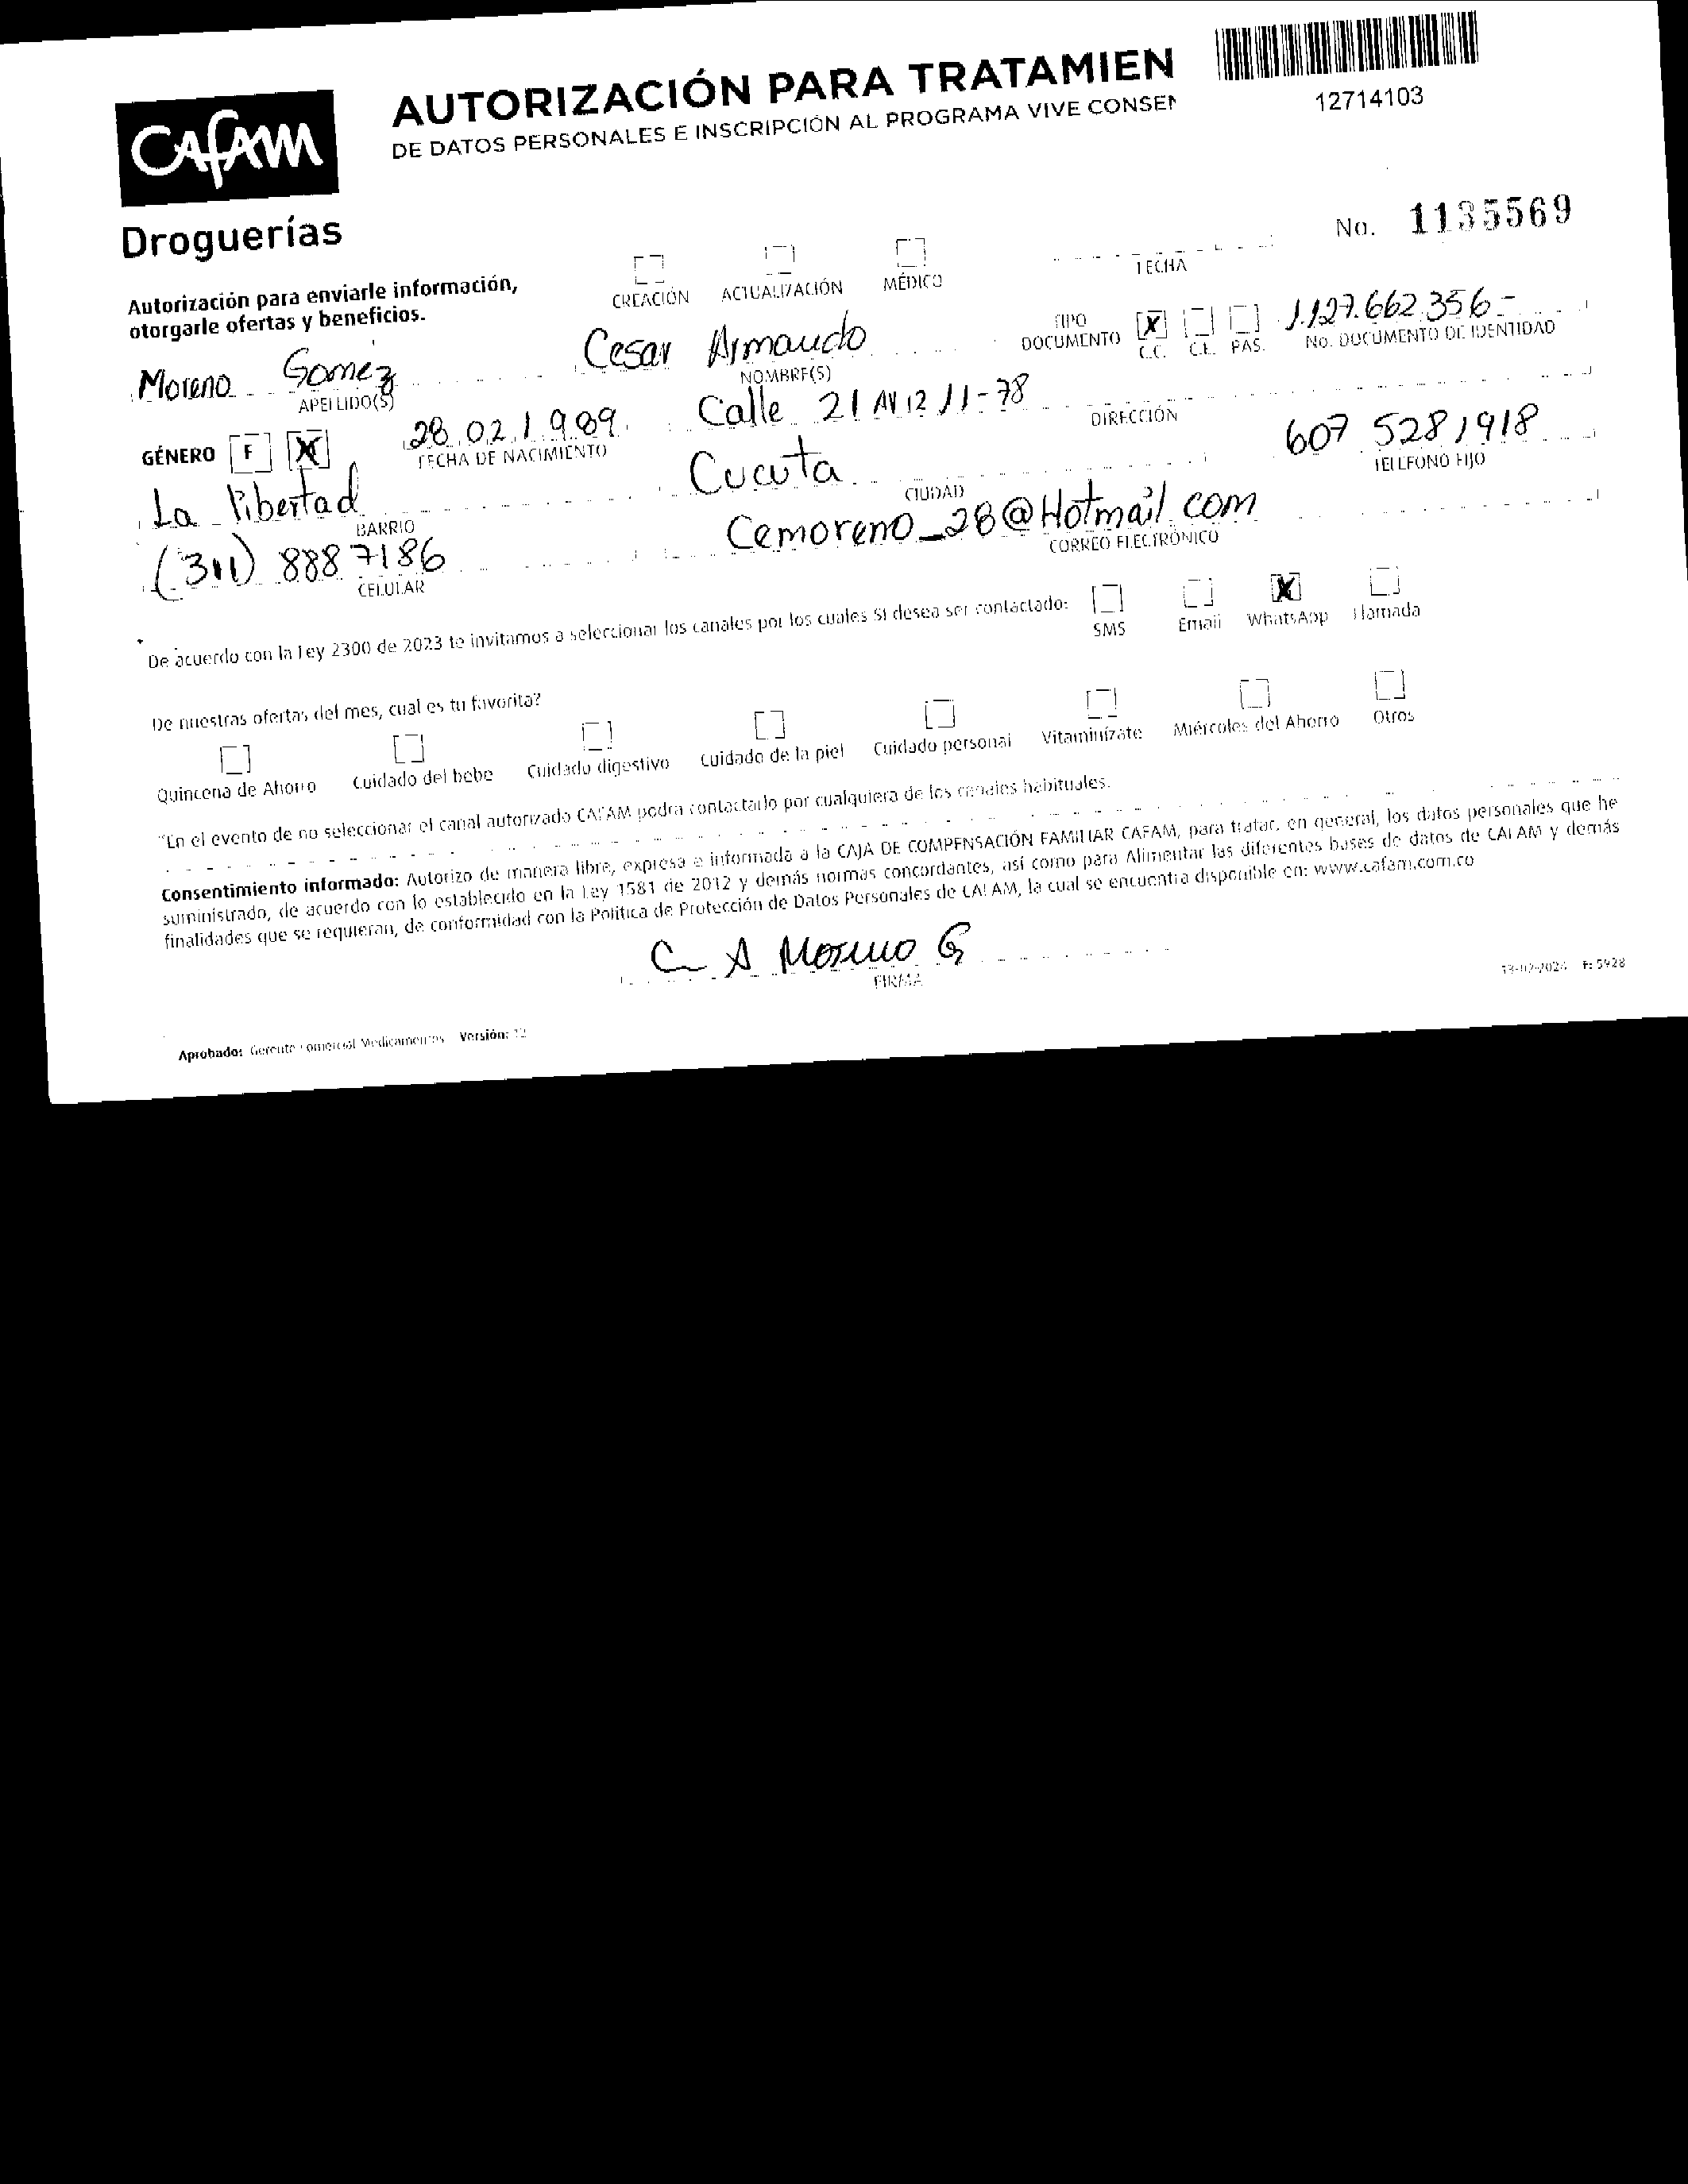 CAFAM
Droguerías
AUTORIZACIÓN PARA TRATAMIEN
DE DATOS PERSONALES E INSCRIPCIÓN AL PROGRAMA VIVE CONSEN
12714103
No. 1135569
Autorización para enviarle información,
otorgarle ofertas y beneficios.
CREACIÓN ACTUALIZACIÓN MÉDICO
FECHA
Moreno Gomez
APELLIDO(S)
Cesar Armando
NOMBRE(S)
TIPO
DOCUMENTO X C.C. C.E. PAS.
1.127.662.356-
No. DOCUMENTO DE IDENTIDAD
GÉNERO F X
28 02 1989
FECHA DE NACIMIENTO
Calle 21 AV 12 11-78
DIRECCIÓN
La libertad
BARRIO
Cucuta
CIUDAD
607 5281918
TELEFONO FIJO
(311) 888 7186
CELULAR
Cemoreno_28@Hotmail.com
CORREO ELECTRÓNICO
De acuerdo con la Ley 2300 de 2023 te invitamos a seleccionar los canales por los cuales SI desea ser contactado:
SMS Email X WhatsApp Llamada
De nuestras ofertas del mes, cual es tu favorita?
Quincena de Ahorro Cuidado del bebe Cuidado digestivo Cuidado de la piel Cuidado personal Vitaminízate Miércoles del Ahorro Otros
"En el evento de no seleccionar el canal autorizado CAFAM podra contactarlo por cualquiera de los canales habituales.
Consentimiento informado: Autorizo de manera libre, expresa e informada a la CAJA DE COMPENSACIÓN FAMILIAR CAFAM, para tratar, en general, los datos personales que he
suministrado, de acuerdo con lo establecido en la Ley 1581 de 2012 y demás normas concordantes, así como para Alimentar las diferentes bases de datos de CAFAM y demás
finalidades que se requieran, de conformidad con la Política de Protección de Datos Personales de CAFAM, la cual se encuentra disponible en: www.cafam.com.co
C A Moreno G
FIRMA
13-02-2024 F: 5928
Aprobado: Gerente Comercial Medicamentos Versión: 12